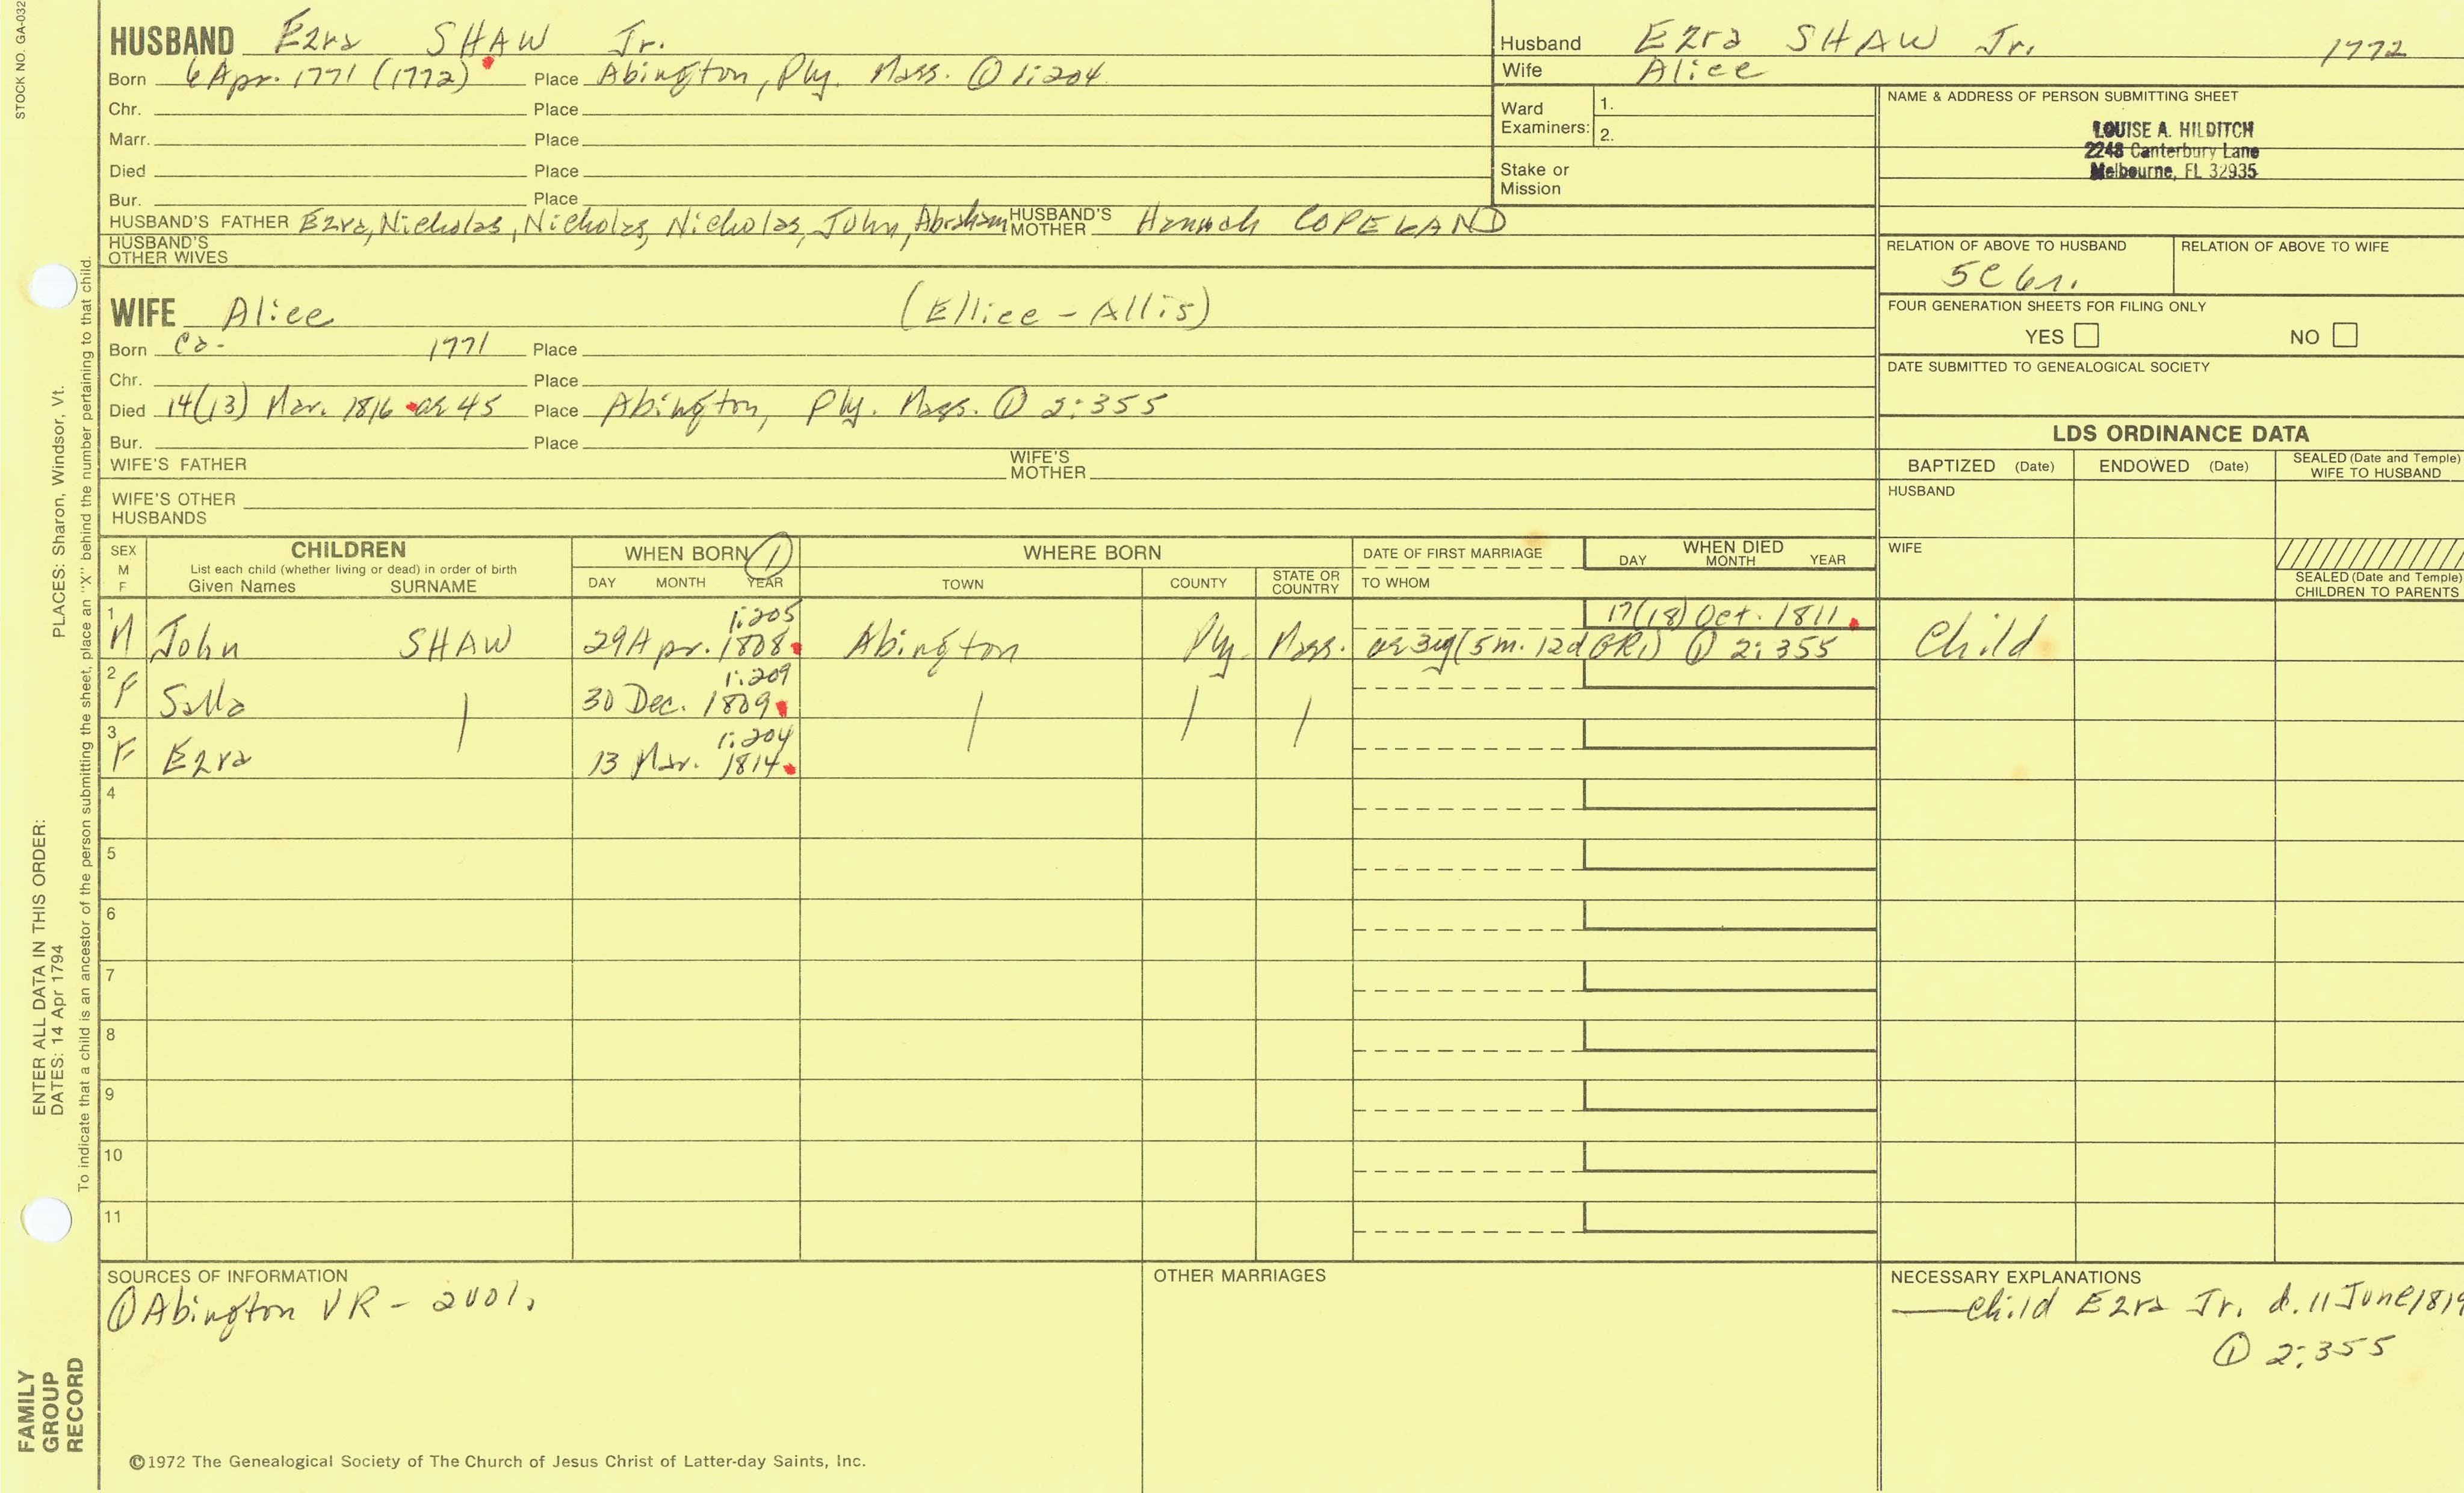 STOCK NO. GA-032
HUSBAND Ezra SHAW Jr.
Born 6 Apr. 1771 (1772) Place Abington, Ply. Mass. ① 1:204
Chr. Place
Marr. Place
Died Place
Bur. Place
HUSBAND'S FATHER Ezra, Nicholas, Nicholas, Nicholas, John, Abraham HUSBAND'S MOTHER Hannah COPELAND
HUSBAND'S OTHER WIVES
Husband Ezra SHAW Jr. 1772
Wife Alice
Ward Examiners: 1.
2.
Stake or Mission
NAME & ADDRESS OF PERSON SUBMITTING SHEET
LOUISE A. HILDITCH
2248 Canterbury Lane
Melbourne, FL 32935
RELATION OF ABOVE TO HUSBAND RELATION OF ABOVE TO WIFE
5C 6r.
FOUR GENERATION SHEETS FOR FILING ONLY
YES NO
DATE SUBMITTED TO GENEALOGICAL SOCIETY
WIFE Alice (Ellice - Allis)
Born Ca. 1771 Place
Chr. Place
Died 14(13) Mar. 1816 ae 45 Place Abington, Ply. Mass. ① 2:355
Bur. Place
WIFE'S FATHER WIFE'S MOTHER
WIFE'S OTHER HUSBANDS
LDS ORDINANCE DATA
BAPTIZED (Date) ENDOWED (Date) SEALED (Date and Temple) WIFE TO HUSBAND
HUSBAND
WIFE
SEALED (Date and Temple) CHILDREN TO PARENTS
SEX M F CHILDREN WHEN BORN ① WHERE BORN DATE OF FIRST MARRIAGE WHEN DIED
List each child (whether living or dead) in order of birth
Given Names SURNAME DAY MONTH YEAR TOWN COUNTY STATE OR COUNTRY TO WHOM DAY MONTH YEAR
1:205 17(18) Oct. 1811
1 M John SHAW 29 Apr. 1808 Abington Ply. Mass. ae 3y (5m. 12d GR1) ① 2:355 Child
1:209
2 F Salla 30 Dec. 1809
1:204
3 F Ezra 13 Mar. 1814
4
5
6
7
8
9
10
11
SOURCES OF INFORMATION
① Abington VR - 2 vols.
OTHER MARRIAGES
NECESSARY EXPLANATIONS
— Child Ezra Jr. d. 11 June 1819
① 2:355
©1972 The Genealogical Society of The Church of Jesus Christ of Latter-day Saints, Inc.
FAMILY
GROUP
RECORD
ENTER ALL DATA IN THIS ORDER:
DATES: 14 Apr 1794 PLACES: Sharon, Windsor, Vt.
To indicate that a child is an ancestor of the person submitting the sheet, place an "X" behind the number pertaining to that child.